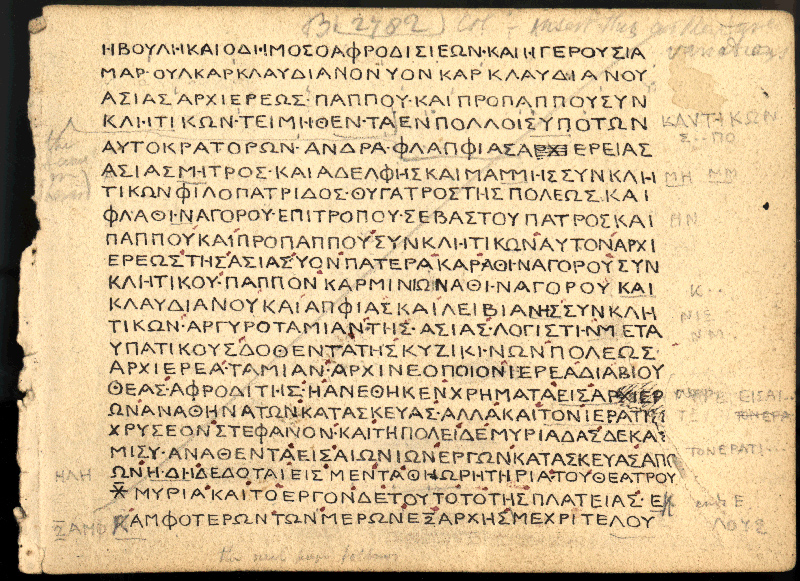 B (2782)
Η ΒΟΥΛΗ ΚΑΙ Ο ΔΗΜΟΣ Ο ΑΦΡΟΔΙΣΙΕΩΝ · ΚΑΙ Η ΓΕΡΟΥΣΙΑ
ΜΑΡ · ΟΥΛ ΚΑΡ ΚΛΑΥΔΙΑΝΟΝ ΥΟΝ ΚΑΡ ΚΛΑΥΔΙΑΝΟΥ
ΑΣΙΑΣ ΑΡΧΙΕΡΕΩΣ · ΠΑΠΠΟΥ · ΚΑΙ ΠΡΟΠΑΠΠΟΥ ΣΥΝ
ΚΛΗΤΙΚΩΝ · ΤΕΙΜΗΘΕΝΤΑ ΕΝ ΠΟΛΛΟΙΣ ΥΠΟ ΤΩΝ ΚΛΗΤΙΚΩΝ
ΑΥΤΟΚΡΑΤΟΡΩΝ · ΑΝΔΡΑ · ΦΛ ΑΠΦΙΑΣ ΑΡΧΙΕΡΕΙΑΣ Σ · · ΠΟ
ΑΣΙΑΣ ΜΗΤΡΟΣ · ΚΑΙ ΑΔΕΛΦΗΣ ΚΑΙ ΜΑΜΜΗΣ ΣΥΝΚΛΗ ΜΗ ΜΜ
ΤΙΚΩΝ ΦΙΛΟΠΑΤΡΙΔΟΣ · ΘΥΓΑΤΡΟΣ ΤΗΣ ΠΟΛΕΩΣ · ΚΑΙ
ΦΛ ΑΘΗΝΑΓΟΡΟΥ · ΕΠΙΤΡΟΠΟΥ · ΣΕΒΑΣΤΟΥ ΠΑΤΡΟΣ ΚΑΙ ΗΝ
ΠΑΠΠΟΥ ΚΑΙ ΠΡΟΠΑΠΠΟΥ ΣΥΝΚΛΗΤΙΚΩΝ ΑΥΤΟΝ ΑΡΧΙ
ΕΡΕΩΣ ΤΗΣ ΑΣΙΑΣ ΥΟΝ ΠΑΤΕΡΑ ΚΑΡ ΑΘΗΝΑΓΟΡΟΥ ΣΥΝ
ΚΛΗΤΙΚΟΥ · ΠΑΠΠΟΝ ΚΑΡΜΙΝΙΩΝ ΑΘΗΝΑΓΟΡΟΥ ΚΑΙ Κ · ·
ΚΛΑΥΔΙΑΝΟΥ ΚΑΙ ΑΠΦΙΑΣ ΚΑΙ ΛΕΙΒΙΑΝΗΣ ΣΥΝΚΛΗ ΝΙΕ
ΤΙΚΩΝ · ΑΡΓΥΡΟΤΑΜΙΑΝ ΤΗΣ · ΑΣΙΑΣ · ΛΟΓΙΣΤΗΝ ΜΕΤΑ ΝΜ
ΥΠΑΤΙΚΟΥΣ ΔΟΘΕΝΤΑ ΤΗΣ ΚΥΖΙΚΗΝΩΝ ΠΟΛΕΩΣ ·
ΑΡΧΙΕΡΕΑ · ΤΑΜΙΑΝ · ΑΡΧΙΝΕΟΠΟΙΟΝ ΙΕΡΕΑ ΔΙΑ ΒΙΟΥ
ΘΕΑΣ · ΑΦΡΟΔΙΤΗΣ · Η ΑΝΕΘΗΚΕΝ ΧΡΗΜΑΤΑ ΕΙΣ ΑΡΧΙΕΡ
ΩΝ ΑΝΑΘΗΝΑΤΩΝ ΚΑΤΑΣΚΕΥΑΣ · ΑΛΛΑ ΚΑΙ ΤΟΝ ΙΕΡΑΤΙΣΙ
ΧΡΥΣΕΟΝ ΣΤΕΦΑΝΟΝ · ΚΑΙ ΤΗ ΠΟΛΕΙ ΔΕ ΜΥΡΙΑΔΑΣ ΔΕΚΑ
ΜΙΣΥ · ΑΝΑΘΕΝΤΑ ΕΙΣ ΑΙΩΝΙΩΝ ΕΡΓΩΝ ΚΑΤΑΣΚΕΥΑΣ ΑΠΟ ΤΟΝ ΕΡΑΤΙ · · ·
ΗΛΗ ΩΝ ΗΔΗ ΔΕΔΟΤΑΙ ΕΙΣ ΜΕΝ ΤΑ ΘΗΩΡΗΤΗΡΙΑ ΤΟΥ ΘΕΑΤΡΟΥ
Χ ΜΥΡΙΑ ΚΑΙ ΤΟ ΕΡΓΟΝ ΔΕ ΤΟΥΤΟ ΤΟ ΤΗΣ ΠΛΑΤΕΙΑΣ · ΕΚ
ΑΜΦΟΤΕΡΩΝ ΤΩΝ ΜΕΡΩΝ ΕΞ ΑΡΧΗΣ ΜΕΧΡΙ ΤΕΛΟΥ ΛΟΥΣ